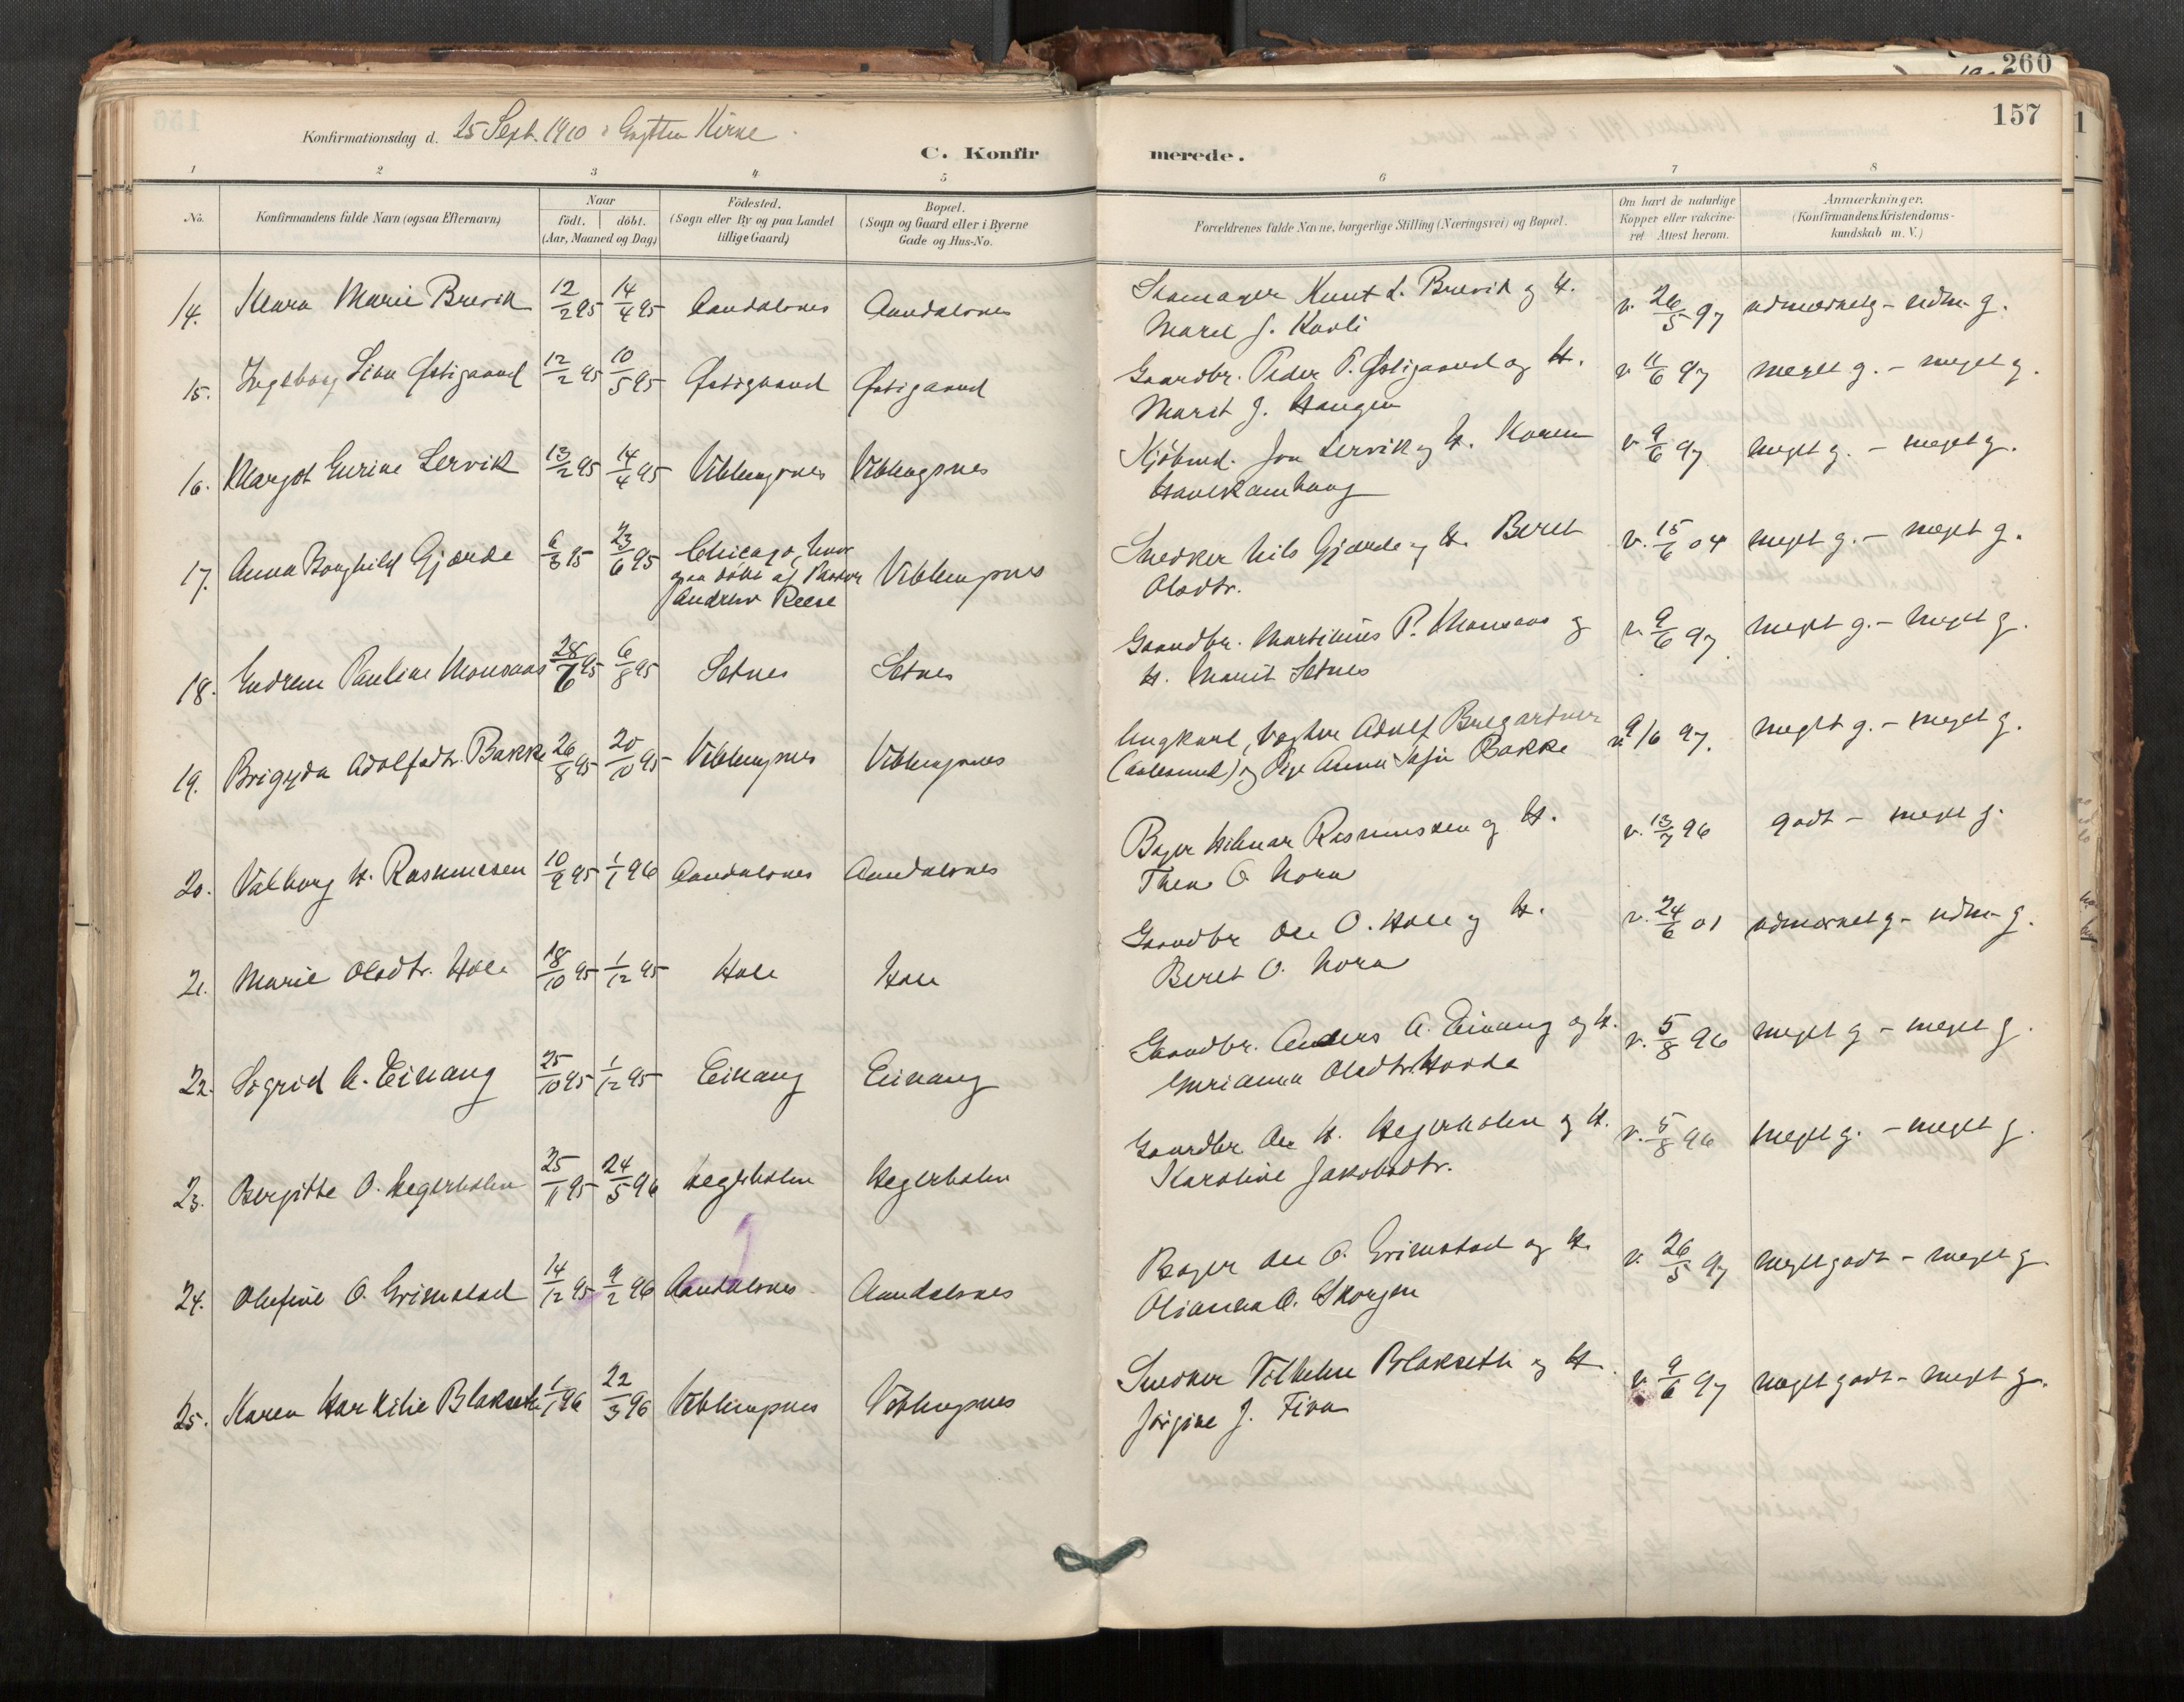 260
157
Konfirmationsdag d. 25 Sept. 1910 i Grytten Kirke
C. Konfir merede.
1 2 3 4 5 6 7 8
No.
Konfirmandens fulde Navn (ogsaa Efternavn)
Naar
födt. döbt.
(Aar, Maaned og Dag)
Födested.
(Sogn eller By og paa Landet
tillige Gaard)
Bopæl.
(Sogn og Gaard eller i Byerne
Gade og Hus-No.
Forældrenes fulde Navne, borgerlige Stilling (Næringsvei) og Bopæl.
Om havt de naturlige
Kopper eller vakcine-
ret Attest herom.
Anmærkninger.
(Konfirmandens Kristendoms-
kundskab m. V.)
14. Klara Marie Brevik 12/2 95 14/4 95 Aandalsnes Aandalsnes Skomager Knut L. Brevik og H. v. 26/5 97 udmærket g - udm. g.
Marit J. Kavli
15. Ingeborg Sina Østigaard 12/2 95 10/5 95 Østigaard Østigaard Gaardbr. Peder P. Østigaard og H. v 11/6 97 meget g. - meget g.
Marit J. Haugen
16. Margot Gurine Lervik 13/2 95 14/4 95 Veblungsnes Veblungsnes Kjöbmd. Jon Lervik og H. Karen v 9/6 97 meget g. - meget g.
Hanekamhaug
17. Anna Borghild Gjærde 6/3 95 23/6 95 Chicago, hvor Veblungsnes Snedker Nils Gjærde og H. Beret v. 15/6 04 meget g. - meget g.
gaa döbt af Pastor
Andrew Reese
Olsdtr.
18. Endrene Pauline Monsaas 28/6 95 6/8 95 Setnes Setnes Gaardbr. Martinus P. Monsaas og v. 9/6 97 meget g. - meget g.
H. Marit Setnes
19. Brigyda Adolfsdtr. Bakke 26/8 95 20/10 95 Veblungsnes Veblungsnes Ungkarl, Vogter Adolf Bregartner v 9/6 97. meget g. - meget g.
(Aalesund) og Pige Anna Sofie Bakke
20. Valborg H. Rasmussen 10/9 95 1/1 96 Aandalsnes Aandalsnes Bager Hilmar Rasmussen og H. v. 13/7 96 godt - meget g.
Thea O. Nora
21. Marie Olsdtr. Hole 18/10 95 1/12 95 Hole Hole Gaardbr Ole O. Hole og H. v. 24/6 01 udmærket g - udm. g.
Beret O. Nora
22. Sigrid A. Einang 25/10 95 1/12 95 Einang Einang Gaardbr. Anders A. Einang og H. v. 5/8 96 meget g - meget g.
Gurianna Olsdtr. Hovde
23. Bergitte O. Hegerholm 25/11 95 24/5 96 Hegerholm Hegerholm Gaardbr Ole H. Hegerholm og H. v. 5/8 96 meget g. - meget g.
Karoline Jakobsdtr.
24. Olufine O. Grimstad 14/12 95 9/2 96 Aandalsnes Aandalsnes Bager Ole O. Grimstad og H. v. 26/5 97 meget godt - meget g.
Olianna O. Skorgen
25. Karen Blakseth 1/1 96 22/3 96 Veblungsnes Veblungsnes Snedker Vilhelm Blakseth og H. v. 9/6 97 meget godt - meget g.
Jörgine J. Fiva